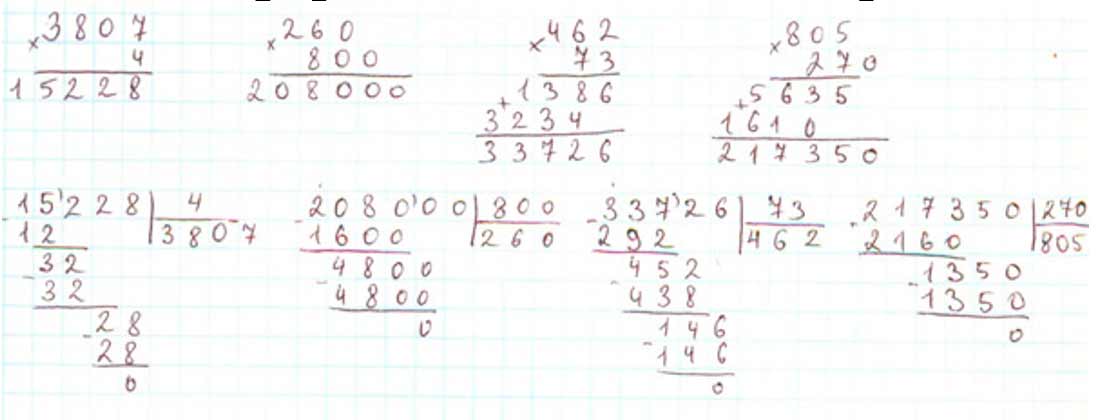 ×3807 ×260 ×462 ×805
4 800 73 270
15228 208000 1386 5635
+3234 +1610
33726 217350
-15'228 | 4 -2080'00 | 800 -337'26 | 73 -217350 | 270
12 | 3807 1600 | 260 292 | 462 2160 | 805
-32 -4800 -452 -1350
32 4800 438 1350
-28 0 -146 0
28 146
0 0